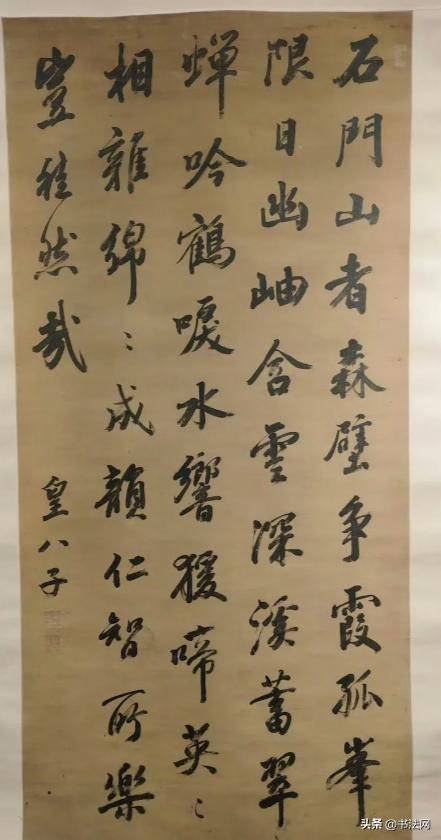 石門山者森壁争霞孤峯
限日幽岫含雲深溪蓄翠
蟬吟鶴唳水響猨啼英〻
相雜綿〻成韻仁智所樂
豈徒然哉
皇八子
头条 @书法网